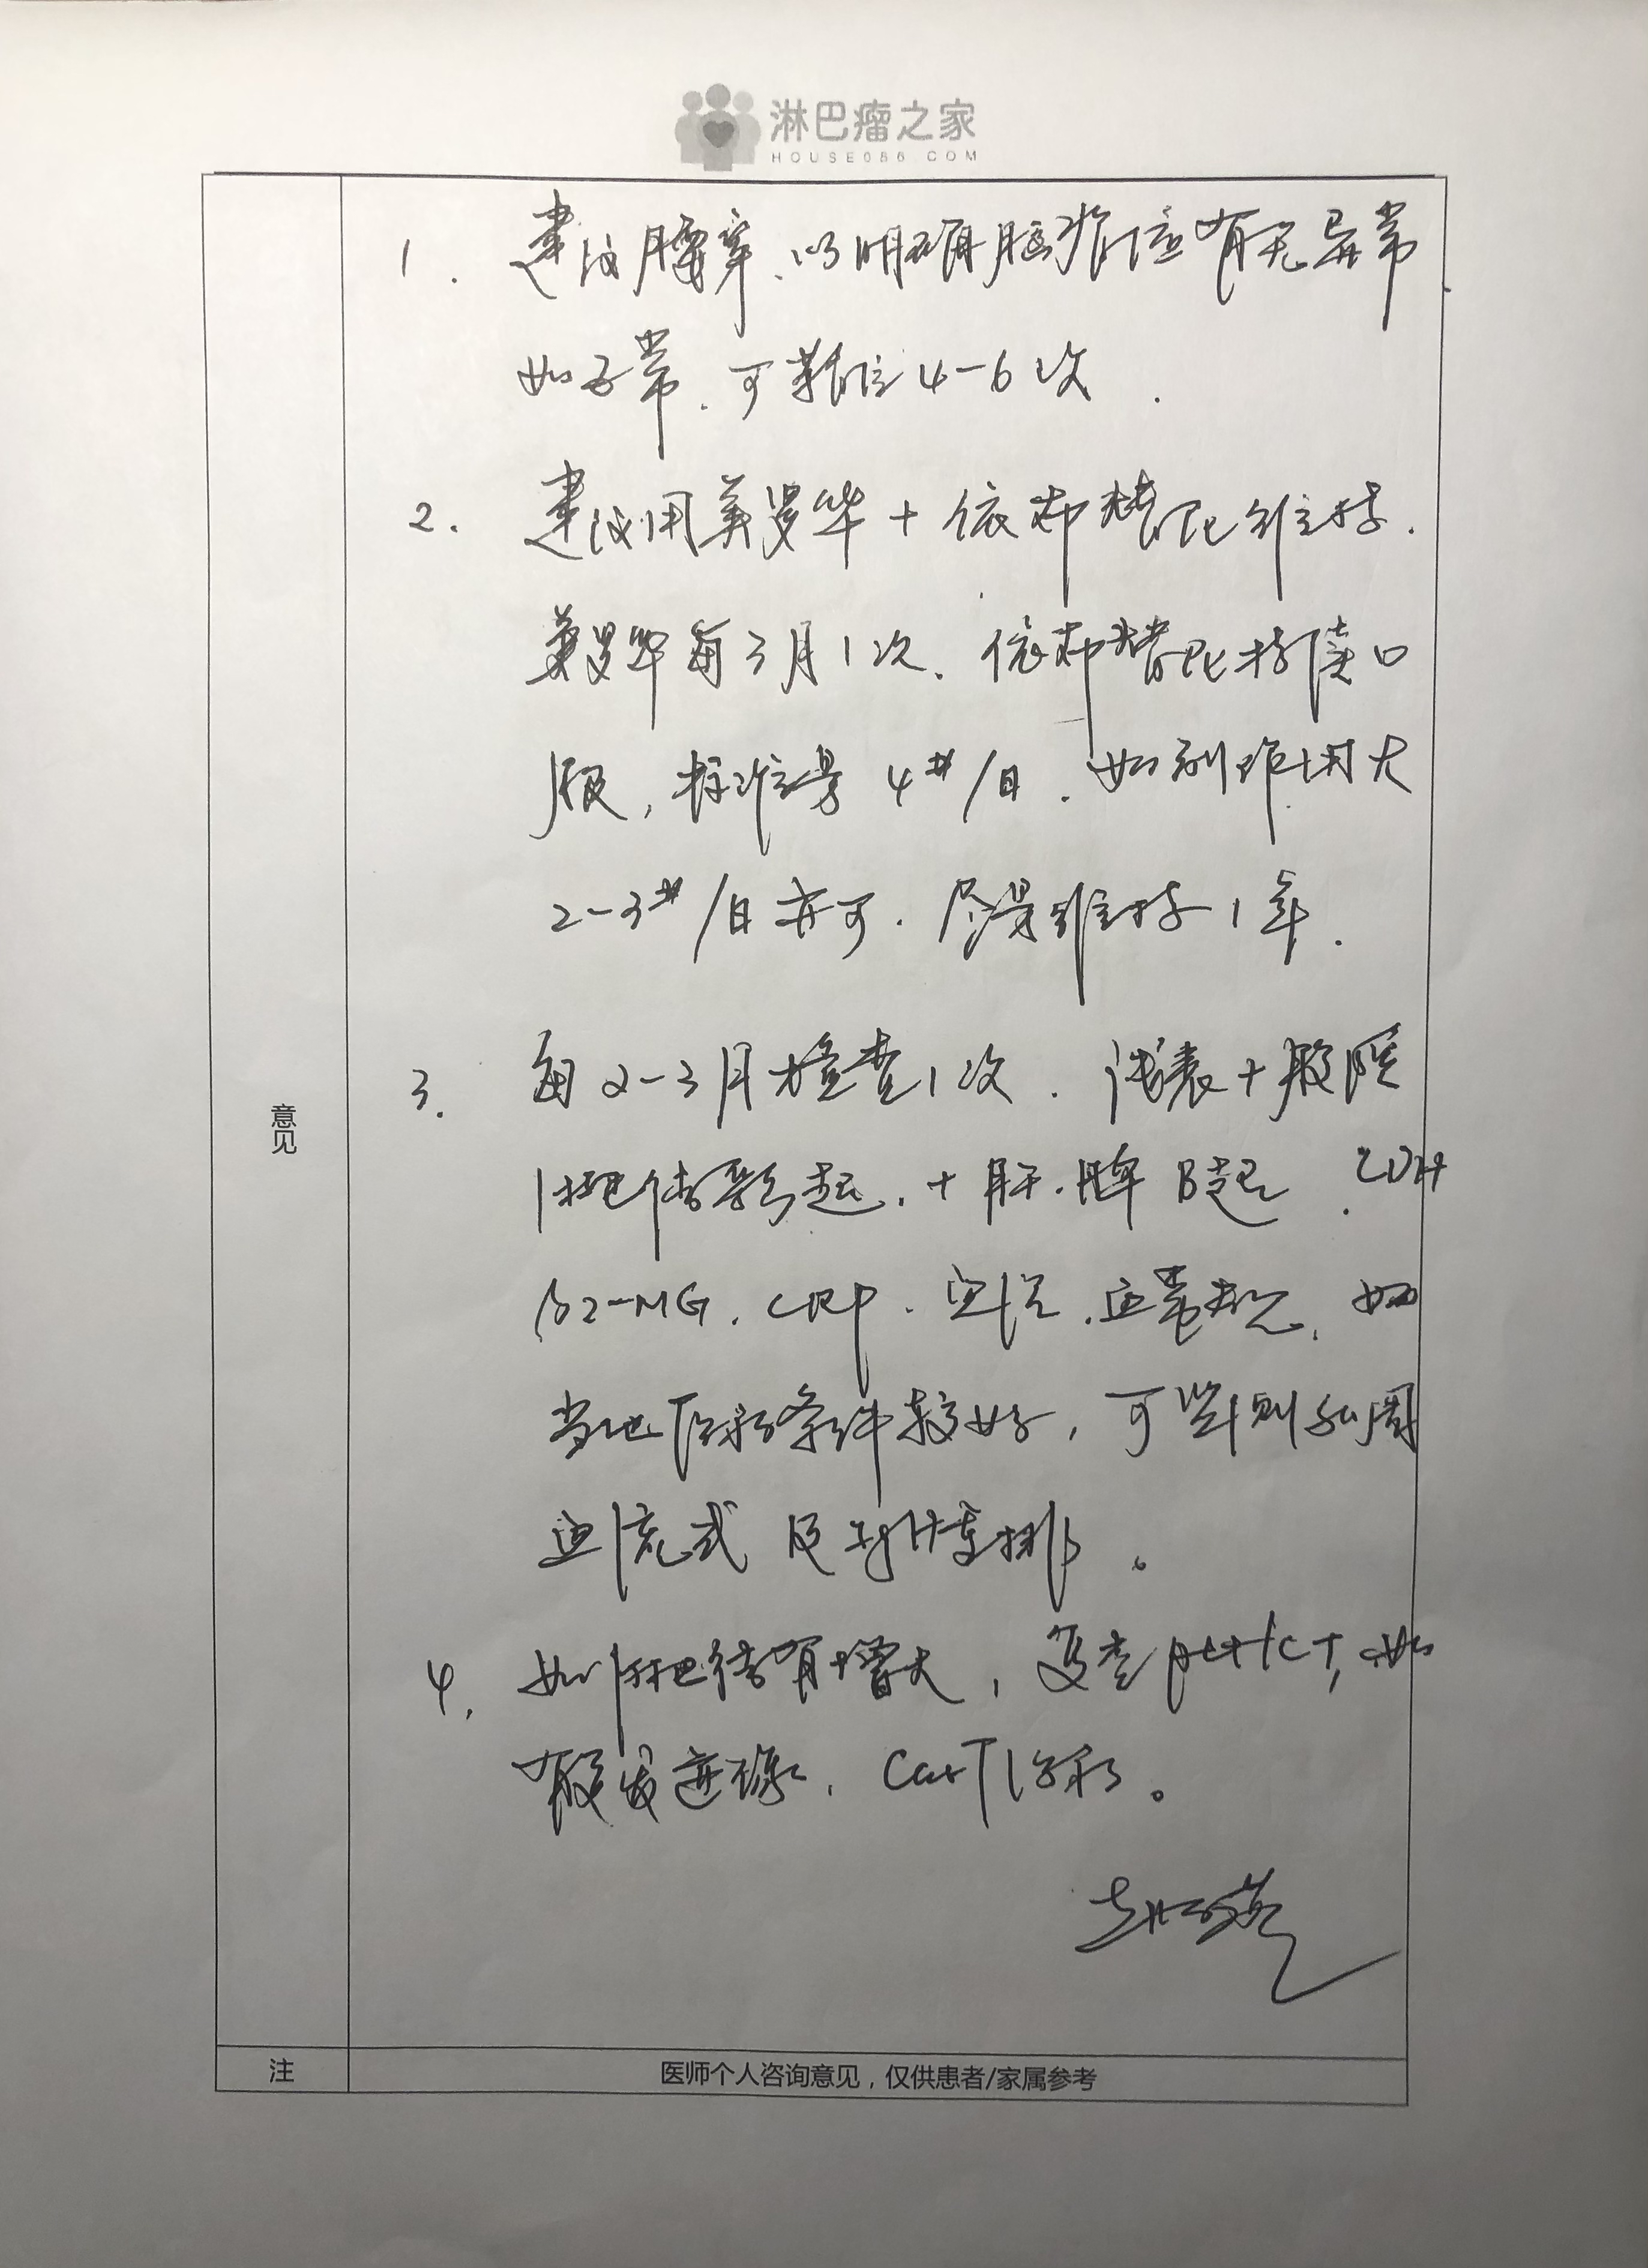 淋巴瘤之家
HOUSE086.COM
意见
1. 建议腰穿、以明确脑部位有无异常
如正常、可鞘注4-6次.
2. 建议用美罗华+依布替尼维持.
美罗华每3月1次、依布替尼持续口
服，标准量4#/日.如副作用大
2-3#/日亦可.尽量维持1年.
3. 每2-3月检查1次.浅表+腹腔
淋巴结彩超.+肝.脾B超.LDH
β2-MG.CRP.血沉.血常规.如
当地医疗条件较好，可监测外周
血流式及重排。
4. 如淋巴结有增大，复查pet/CT,如
有复发迹象，CarT治疗。
注
医师个人咨询意见，仅供患者/家属参考